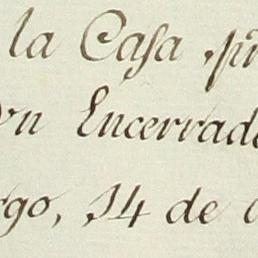 la Casa
Encerrad
go, 14 de